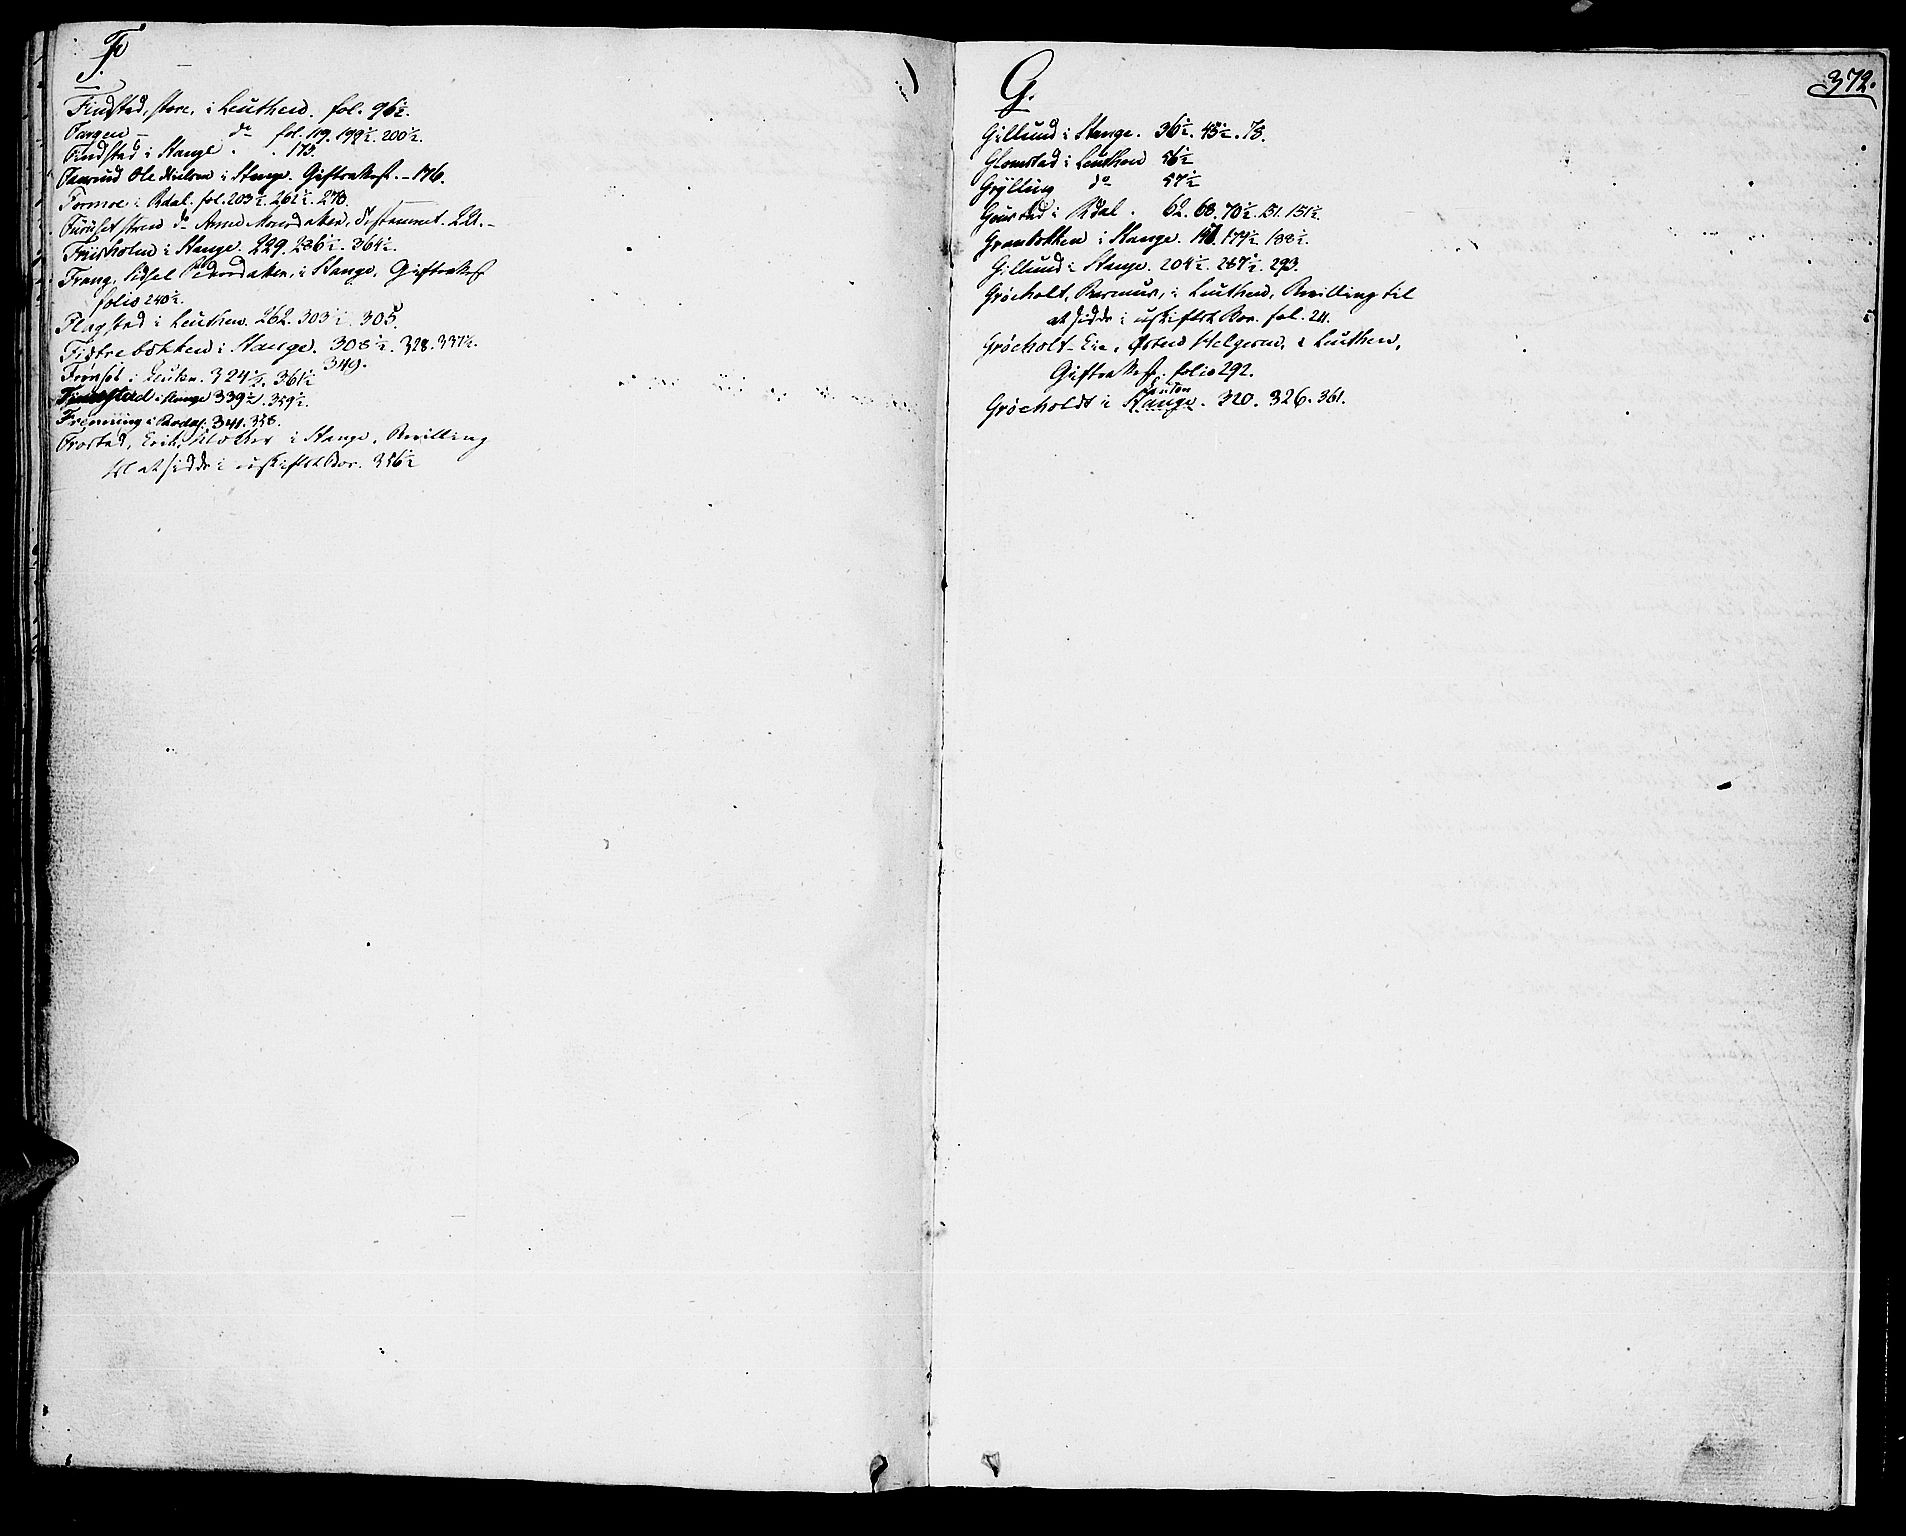 F.
Findstad, store, i Leuthen. fol. 96½.
Fargen – do fol. 119. 199½. 200½.
Findstad i Stange . . 173.
Ole Nielsen i Stange. Giftesk. – 176.
Formoe i Rdal. fol. 203½. 261½. 278.
do Anne testament. 221. –
Friisholm i Stange. 229. 286½. 364½.
Frang, Sidsel Pedersdatter, i Stange,
folio 240½.
Flagstad i Leuthen. 262. 303½. 305.
Fistrebækken i Stange. 308½. 328. 337½.
349.
Frønsøt i 324½. 361½
i Stange 339½. 359½.
Frenning i 341. 358.
Frostad, Erik i Stange, Bevilling
til at sidde i uskiftet Boe. 356½
G.
372.
Gillund i Stange. 36½. 45½. 78.
Glomstad i Leuthen 56½
Grylling do 57½
i Rdal . 62. 68. 70½. 151. 151½.
Granbækken i Stange. 174½ 188½.
Gillund i Stange. 204½. 287½. 293.
Grøeholt, Rasmus, i Leuthen, Bevilling til
at sidde i uskiftet Boe. fol. 211.
Grøeholt-Eie, Helgesen, i Leuthen,
folio 292.
Grøeholdt i Stange. 320. 326. 361.